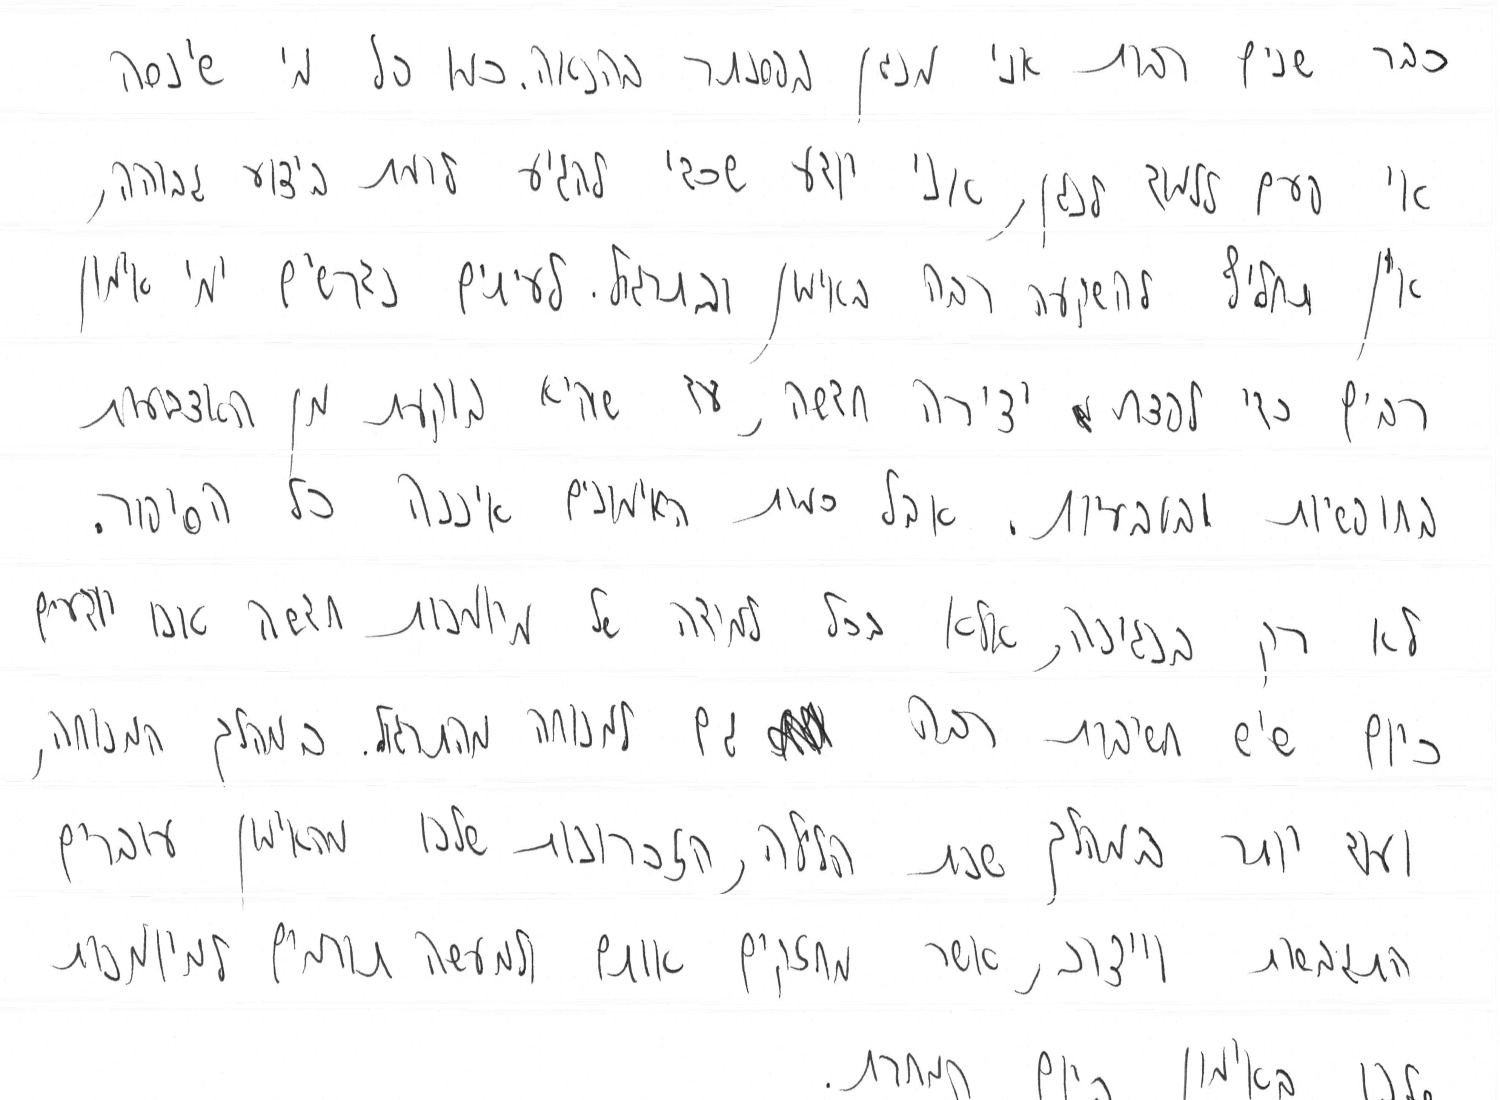 כבר שנים רבות אני מנגן בפסנתר בהנאה. כמו כל מי שינסה
אי פעם ללמוד לנגן, אני יודע שכדי להגיע לרמת ביצוע גבוהה,
אין תחליף להשקעה רבה באימון ובתרגול. לעיתים נדרשים ימי אימון
רבים כדי לפצח יצירה חדשה, עד שהיא בוקעת מן האצבעות
בחופשיות ובטבעיות. אבל כמות האימונים איננה כל הסיפור.
לא רק בנגינה, אלא בכל למידה של מיומנות חדשה אנו יודעים
כיום שיש חשיבות רבה גם למנוחה מהתרגול. במהלך המנוחה,
ועוד יותר במהלך שנת הלילה, הזכרונות שלנו מהאימון עוברים
התגבשות וייצוב, אשר מחזקים אותם ולמעשה תורמים למיומנות
שלנו באימון ביום המחרת.